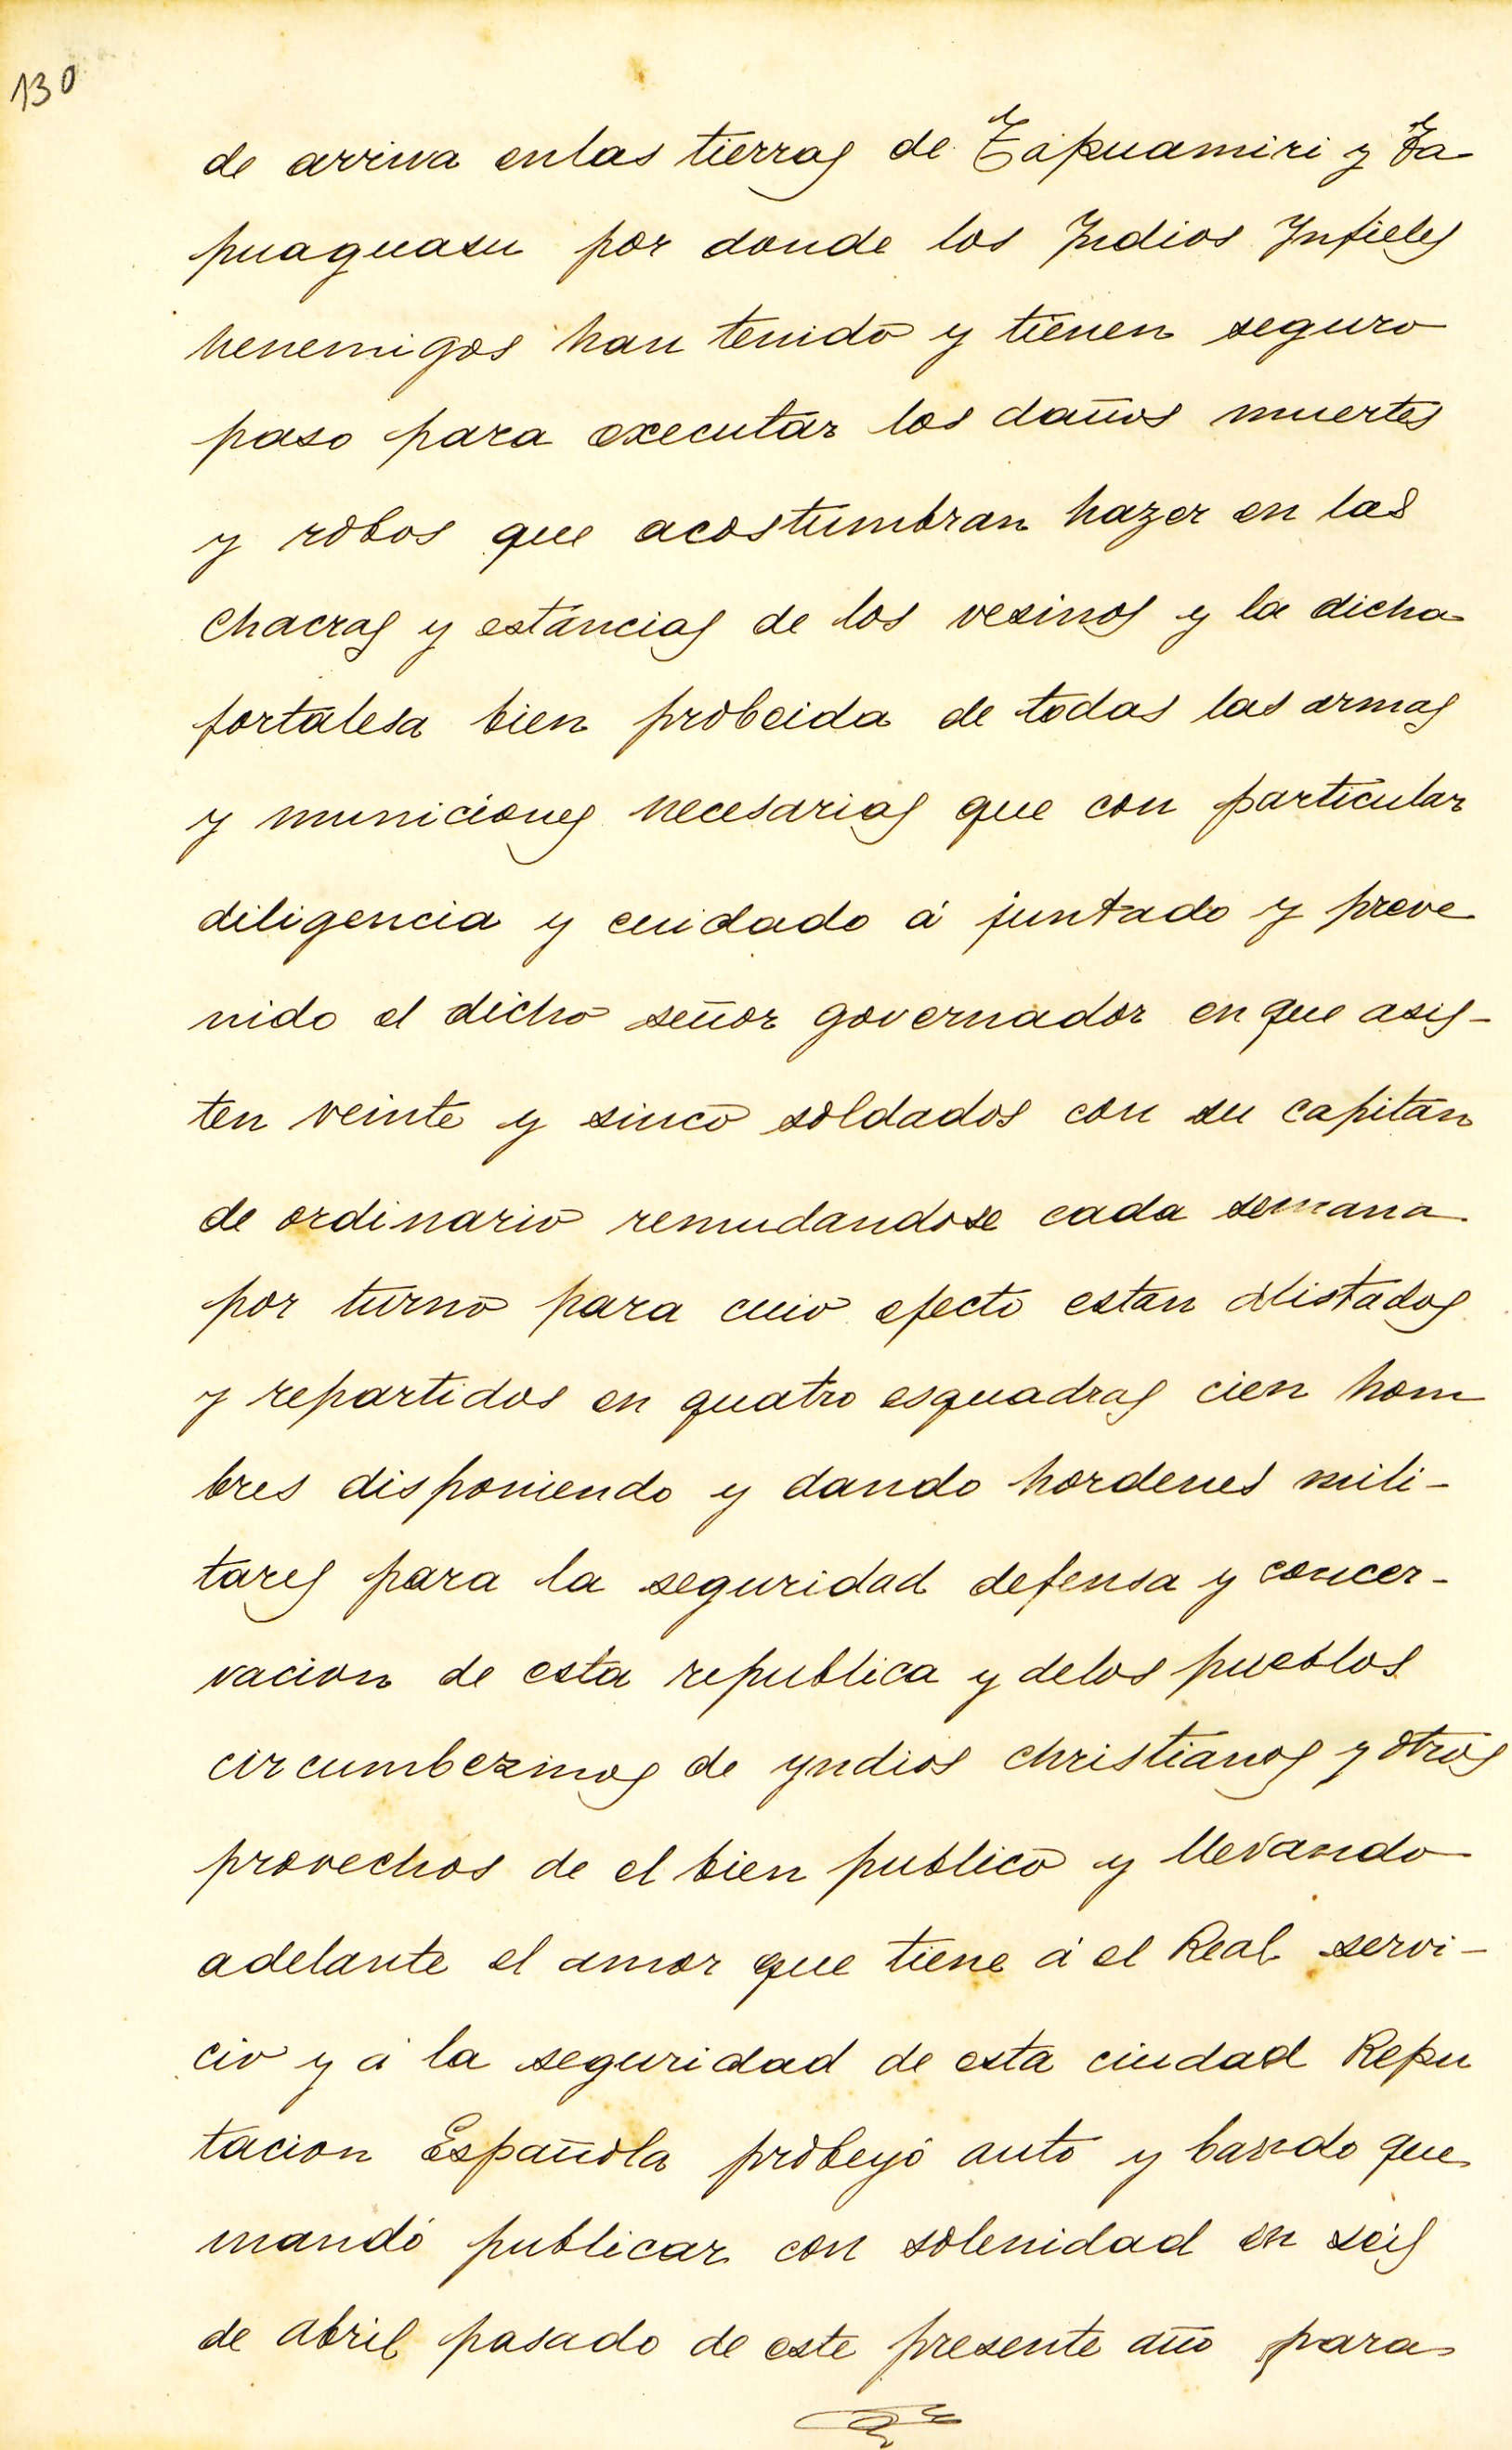 130
de arriva enlas tierras de Tapuamiri y Ta
puaguasu por donde los Indios Infieles
henemigos han tenido y tienen seguro
paso para executar los daños muertes
y robos que acostumbran hazer en las
chacras y estancias de los vesinos y la dicha
fortalesa bien probeida de todas las armas
y municiones necesarias que con particular
diligencia y cuidado á juntado y preve
nido el dicho señor governador en que asis-
ten veinte y sinco soldados con su capitan
de ordinario remudandose cada semana
por turno para cuio efecto estan alistados
y repartidos en quatro esquadras cien hom
bres disponiendo y dando hordenes mili-
tares para la seguridad defensa y concer-
vacion de esta republica y delos pueblos
circumbezinos de yndios christianos y otros
provechos de el bien publico y llevando
adelante el amor que tiene á el Real servi-
cio y á la seguridad de esta ciudad Repu
tacion Española probeyó auto y bando que
mandó publicar con solenidad en seis
de abril pasado de este presente año para